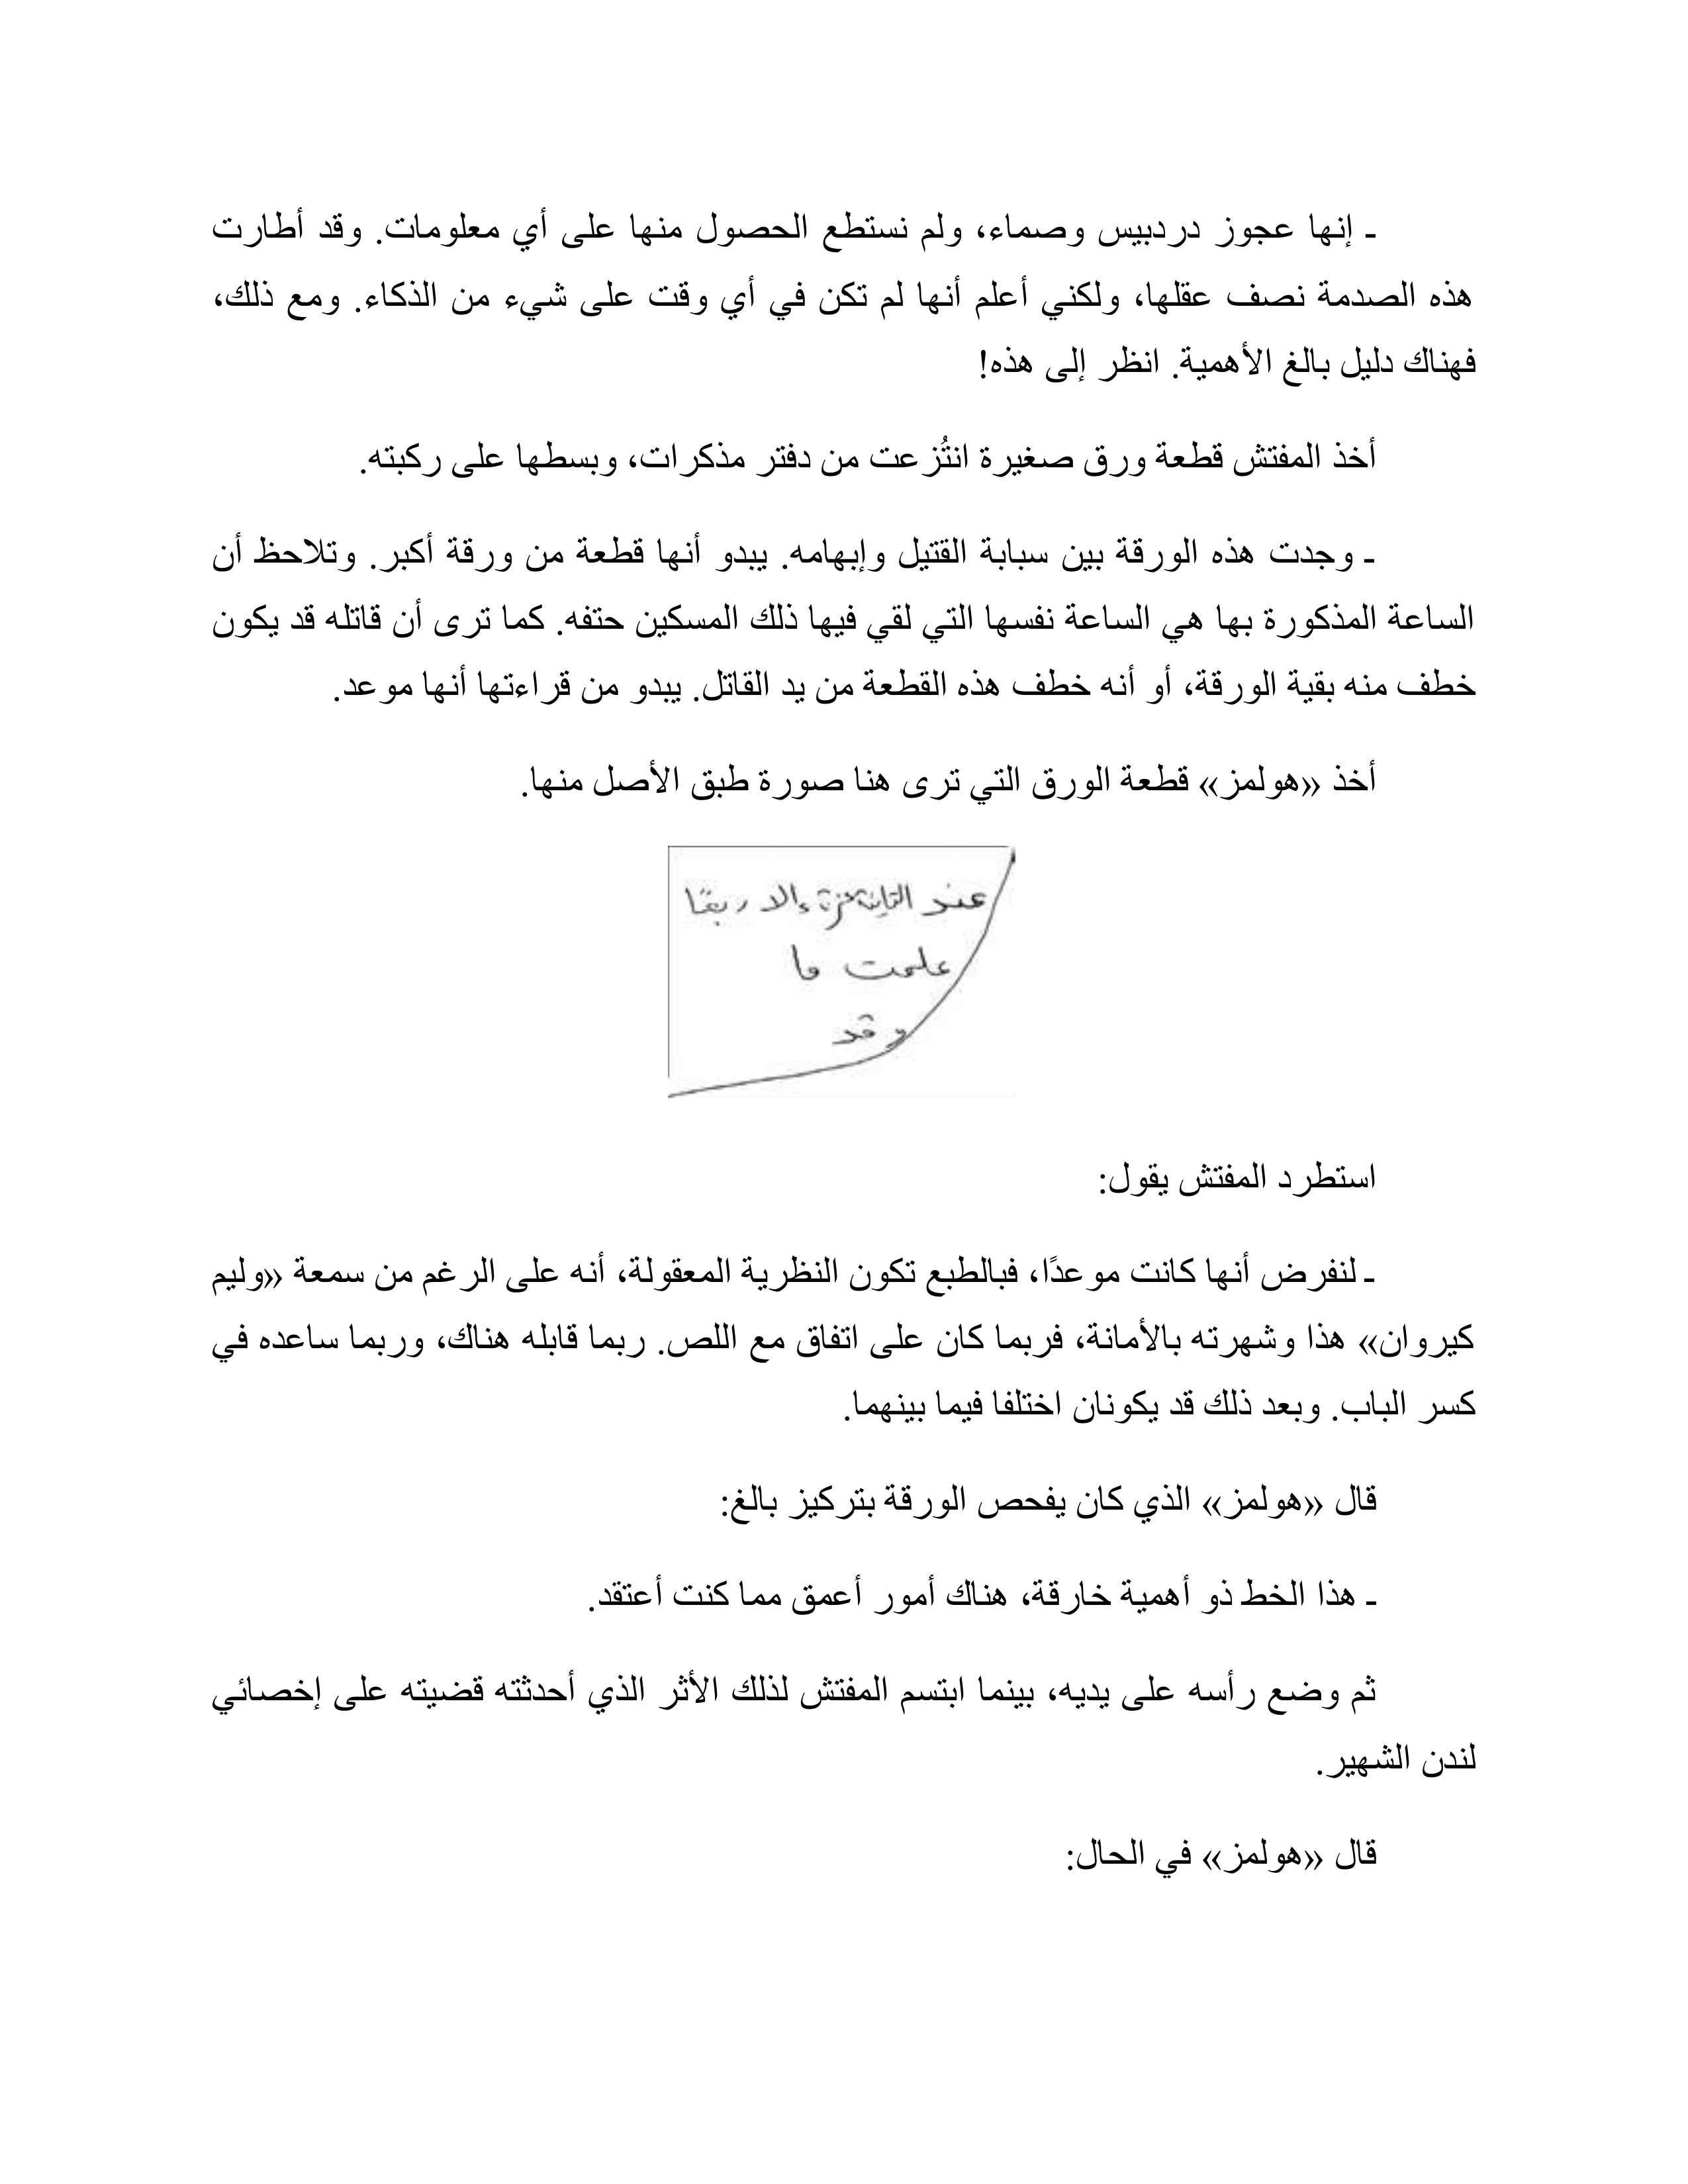 ـ إنها عجوز دردبيس وصماء، ولم نستطع الحصول منها على أي معلومات. وقد أطارت
هذه الصدمة نصف عقلها، ولكني أعلم أنها لم تكن في أي وقت على شيء من الذكاء. ومع ذلك،
فهناك دليل بالغ الأهمية. انظر إلى هذه!
أخذ المفتش قطعة ورق صغيرة انتُزعت من دفتر مذكرات، وبسطها على ركبته.
ـ وجدت هذه الورقة بين سبابة القتيل وإبهامه. يبدو أنها قطعة من ورقة أكبر. وتلاحظ أن
الساعة المذكورة بها هي الساعة نفسها التي لقي فيها ذلك المسكين حتفه. كما ترى أن قاتله قد يكون
خطف منه بقية الورقة، أو أنه خطف هذه القطعة من يد القاتل. يبدو من قراءتها أنها موعد.
أخذ «هولمز» قطعة الورق التي ترى هنا صورة طبق الأصل منها.
عند إلا ربعًا
علمت ما
وقد
استطرد المفتش يقول:
ـ لنفرض أنها كانت موعدًا، فبالطبع تكون النظرية المعقولة، أنه على الرغم من سمعة «وليم
كيروان» هذا وشهرته بالأمانة، فربما كان على اتفاق مع اللص. ربما قابله هناك، وربما ساعده في
كسر الباب. وبعد ذلك قد يكونان اختلفا فيما بينهما.
قال «هولمز» الذي كان يفحص الورقة بتركيز بالغ:
ـ هذا الخط ذو أهمية خارقة، هناك أمور أعمق مما كنت أعتقد.
ثم وضع رأسه على يديه، بينما ابتسم المفتش لذلك الأثر الذي أحدثته قضيته على إخصائي
لندن الشهير.
قال «هولمز» في الحال: